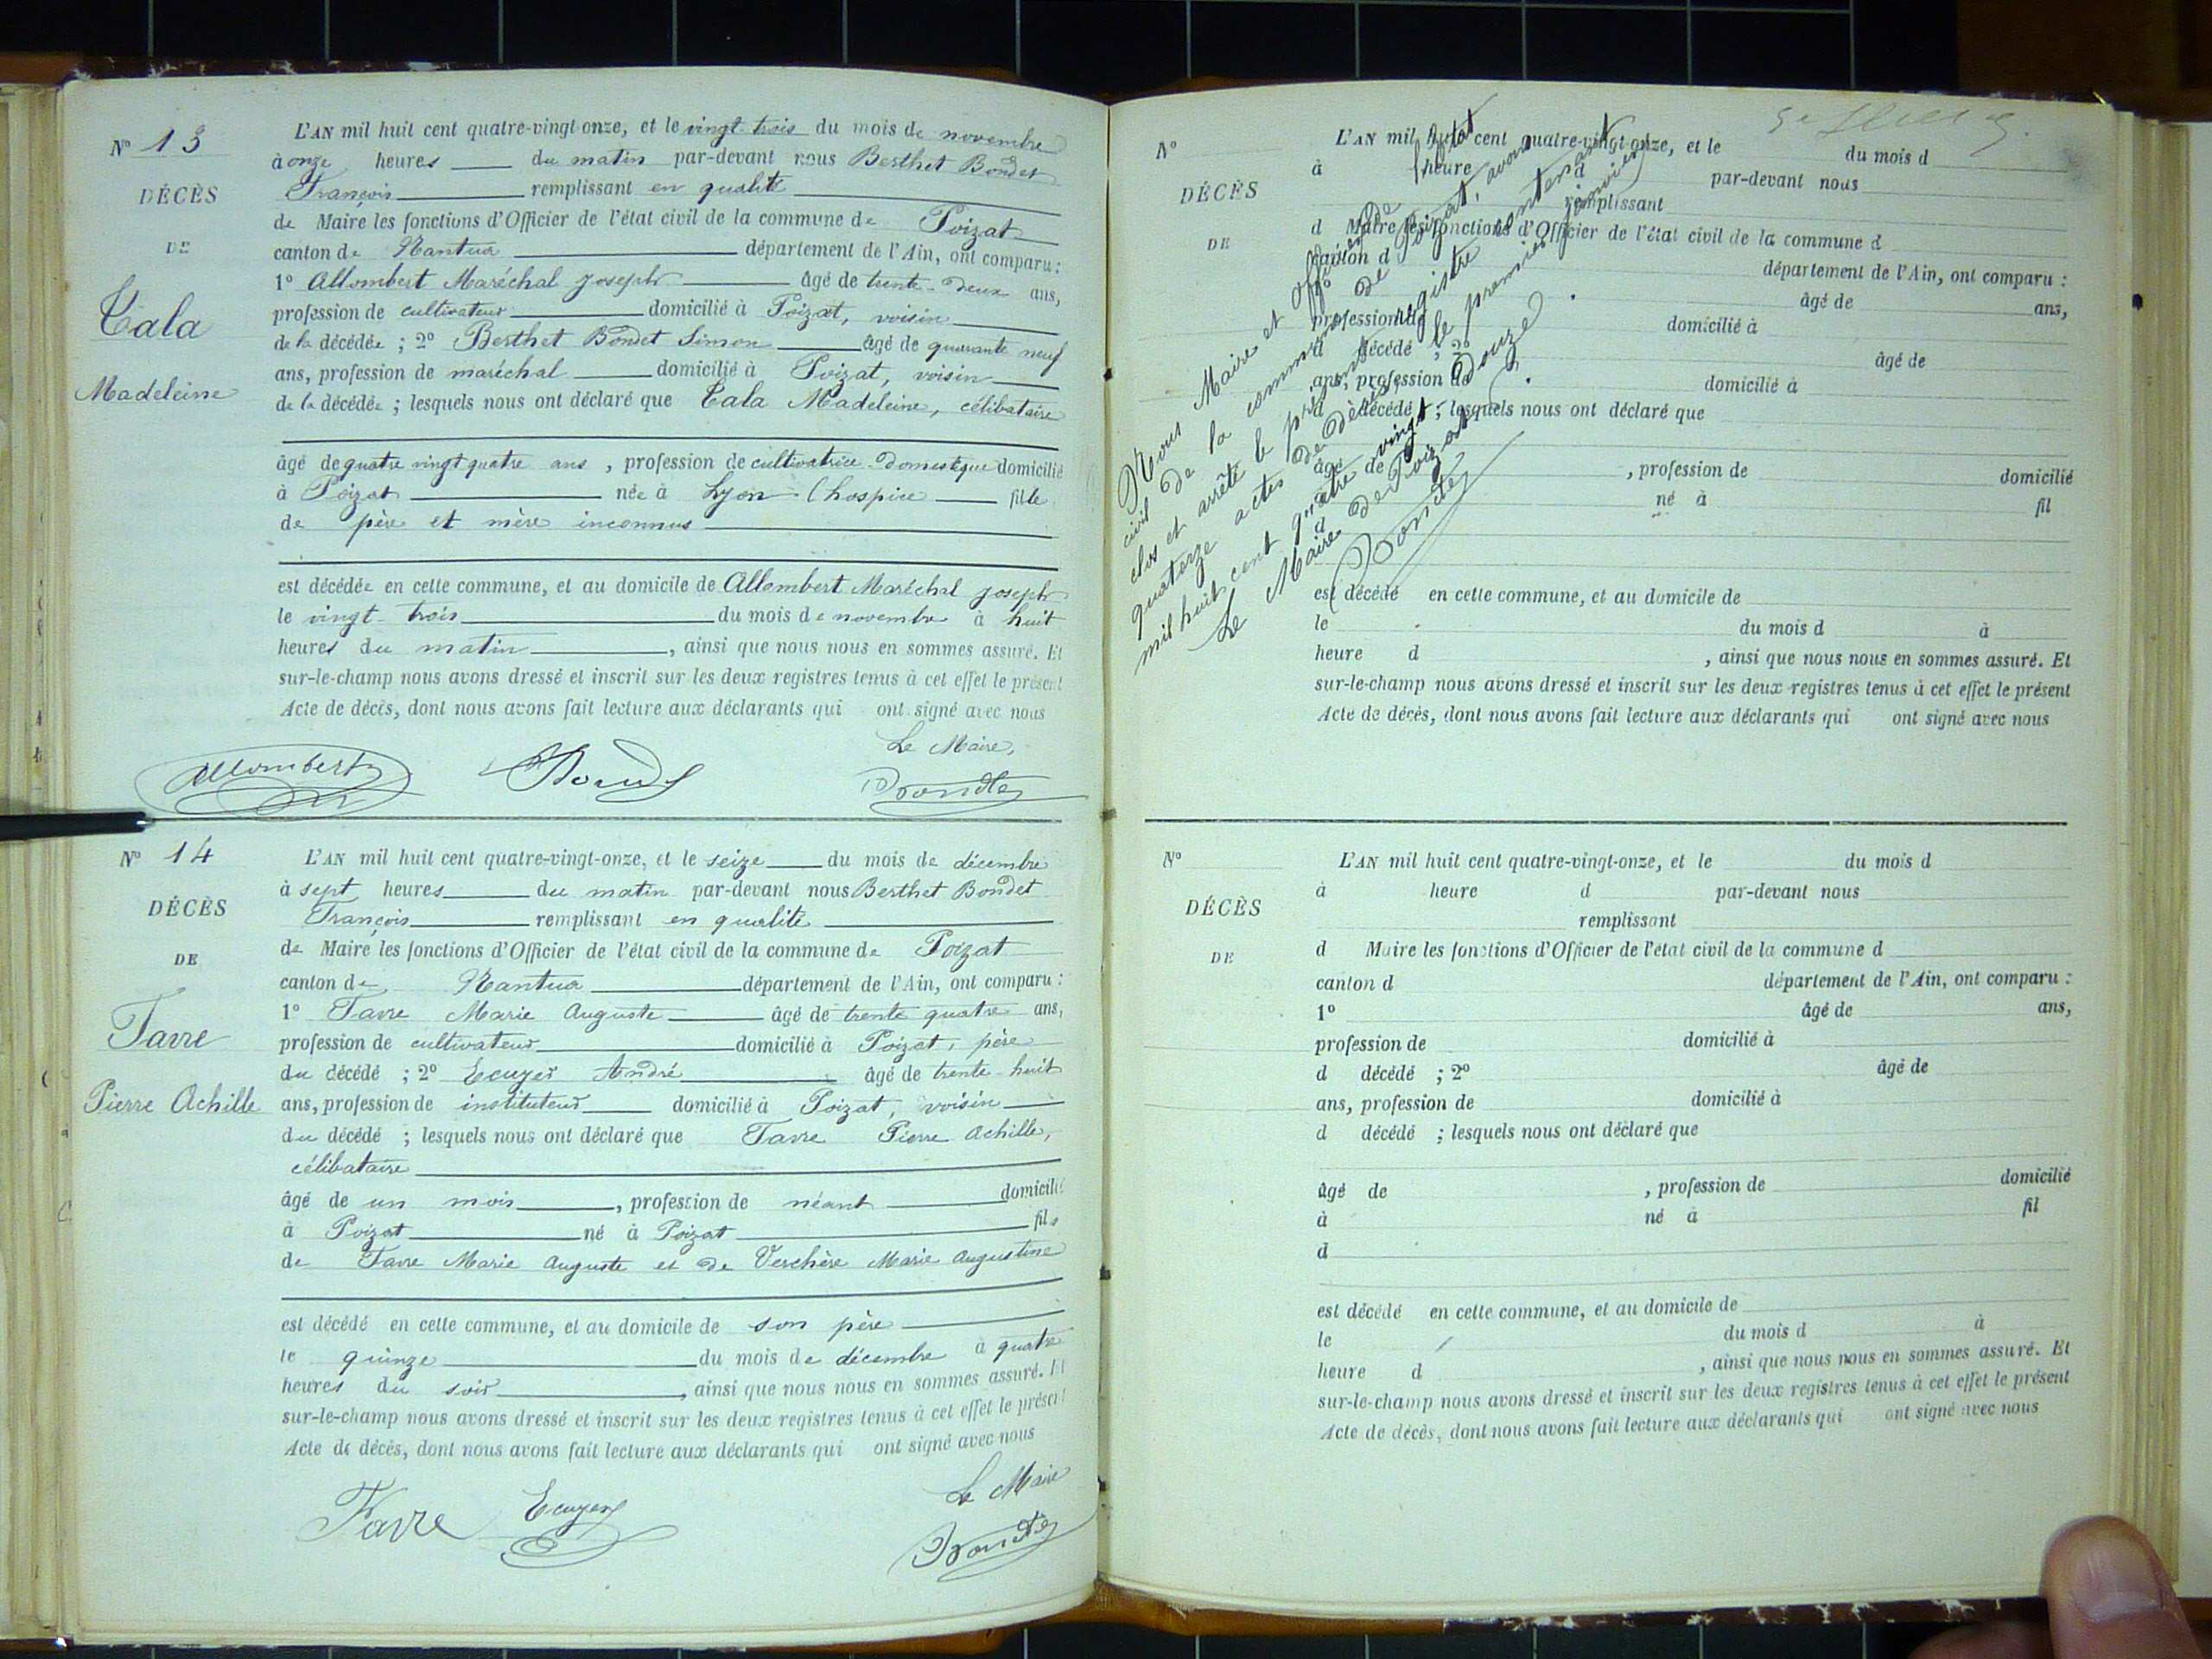 N° 13
DÉCÈS
DE
Tala
Madeleine
L'AN mil huit cent quatre-vingt-onze, et le vingt trois du mois de novembre
à onze heures du matin par-devant nous Berthet Bondet
François remplissant en qualité
de Maire les fonctions d'Officier de l'état civil de la commune de Poizat
canton de Nantua département de l'Ain, ont comparu :
1° Allombert Maréchal Joseph âgé de trente-deux ans,
profession de cultivateur domicilié à Poizat, voisin
de la décédée ; 2° Berthet Bondet Simon âgé de quarante neuf
ans, profession de maréchal domicilié à Poizat, voisin
de la décédée ; lesquels nous ont déclaré que Tala Madeleine, célibataire
âgé de quatre vingt quatre ans , profession de cultivatrice domestique domicilié
à Poizat née à Lyon (hospice fille
de père et mère inconnus
est décédée en cette commune, et au domicile de Allombert Maréchal Joseph
le vingt-trois du mois de novembre à huit
heures du matin , ainsi que nous nous en sommes assuré. Et
sur-le-champ nous avons dressé et inscrit sur les deux registres tenus à cet effet le présent
Acte de décès, dont nous avons fait lecture aux déclarants qui ont signé avec nous
Le Maire,
Allombert Bondet Bondet
N° 14
DÉCÈS
DE
Favre
Pierre Achille
L'AN mil huit cent quatre-vingt-onze, et le seize du mois de décembre
à sept heures du matin par-devant nous Berthet Bondet
François remplissant en qualité
de Maire les fonctions d'Officier de l'état civil de la commune de Poizat
canton de Nantua département de l'Ain, ont comparu :
1° Favre Marie Auguste âgé de trente quatre ans,
profession de cultivateur domicilié à Poizat, père
du décédé ; 2° Ecuyer André âgé de trente-huit
ans, profession de instituteur domicilié à Poizat, voisin
du décédé ; lesquels nous ont déclaré que Favre Pierre Achille,
célibataire
âgé de un mois , profession de néant domicilié
à Poizat né à Poizat fils
de Favre Marie Auguste et de Verchère Marie Augustine
est décédé en cette commune, et au domicile de son père
le quinze du mois de décembre à quatre
heures du soir , ainsi que nous nous en sommes assuré. Et
sur-le-champ nous avons dressé et inscrit sur les deux registres tenus à cet effet le présent
Acte de décès, dont nous avons fait lecture aux déclarants qui ont signé avec nous
Le Maire
Favre Ecuyer Bondet
N°
DÉCÈS
DE
L'AN mil huit cent quatre-vingt-onze, et le du mois d
à heure d par-devant nous
remplissant
d Maire les fonctions d'Officier de l'état civil de la commune d
canton d département de l'Ain, ont comparu :
âgé de ans,
profession de domicilié à
d décédé ; 2° âgé de
ans, profession de domicilié à
d décédé ; lesquels nous ont déclaré que
âgé de , profession de domicilié
à né à fil
d
est décédé en cette commune, et au domicile de
le du mois d à
heure d , ainsi que nous nous en sommes assuré. Et
sur-le-champ nous avons dressé et inscrit sur les deux registres tenus à cet effet le présent
Acte de décès, dont nous avons fait lecture aux déclarants qui ont signé avec nous
Nous Maire et Officier de l'état
civil de la commune de Poizat, avons
clos et arrêté le présent registre contenant
quatorze actes de décès, le premier janvier
mil huit cent quatre vingt-douze.
Le Maire de Poizat
Bondet
N°
DÉCÈS
DE
L'AN mil huit cent quatre-vingt-onze, et le du mois d
à heure d par-devant nous
remplissant
d Maire les fonctions d'Officier de l'état civil de la commune d
canton d département de l'Ain, ont comparu :
1° âgé de ans,
profession de domicilié à
d décédé ; 2° âgé de
ans, profession de domicilié à
d décédé ; lesquels nous ont déclaré que
âgé de , profession de domicilié
à né à fil
d
est décédé en cette commune, et au domicile de
le du mois d à
heure d , ainsi que nous nous en sommes assuré. Et
sur-le-champ nous avons dressé et inscrit sur les deux registres tenus à cet effet le présent
Acte de décès, dont nous avons fait lecture aux déclarants qui ont signé avec nous